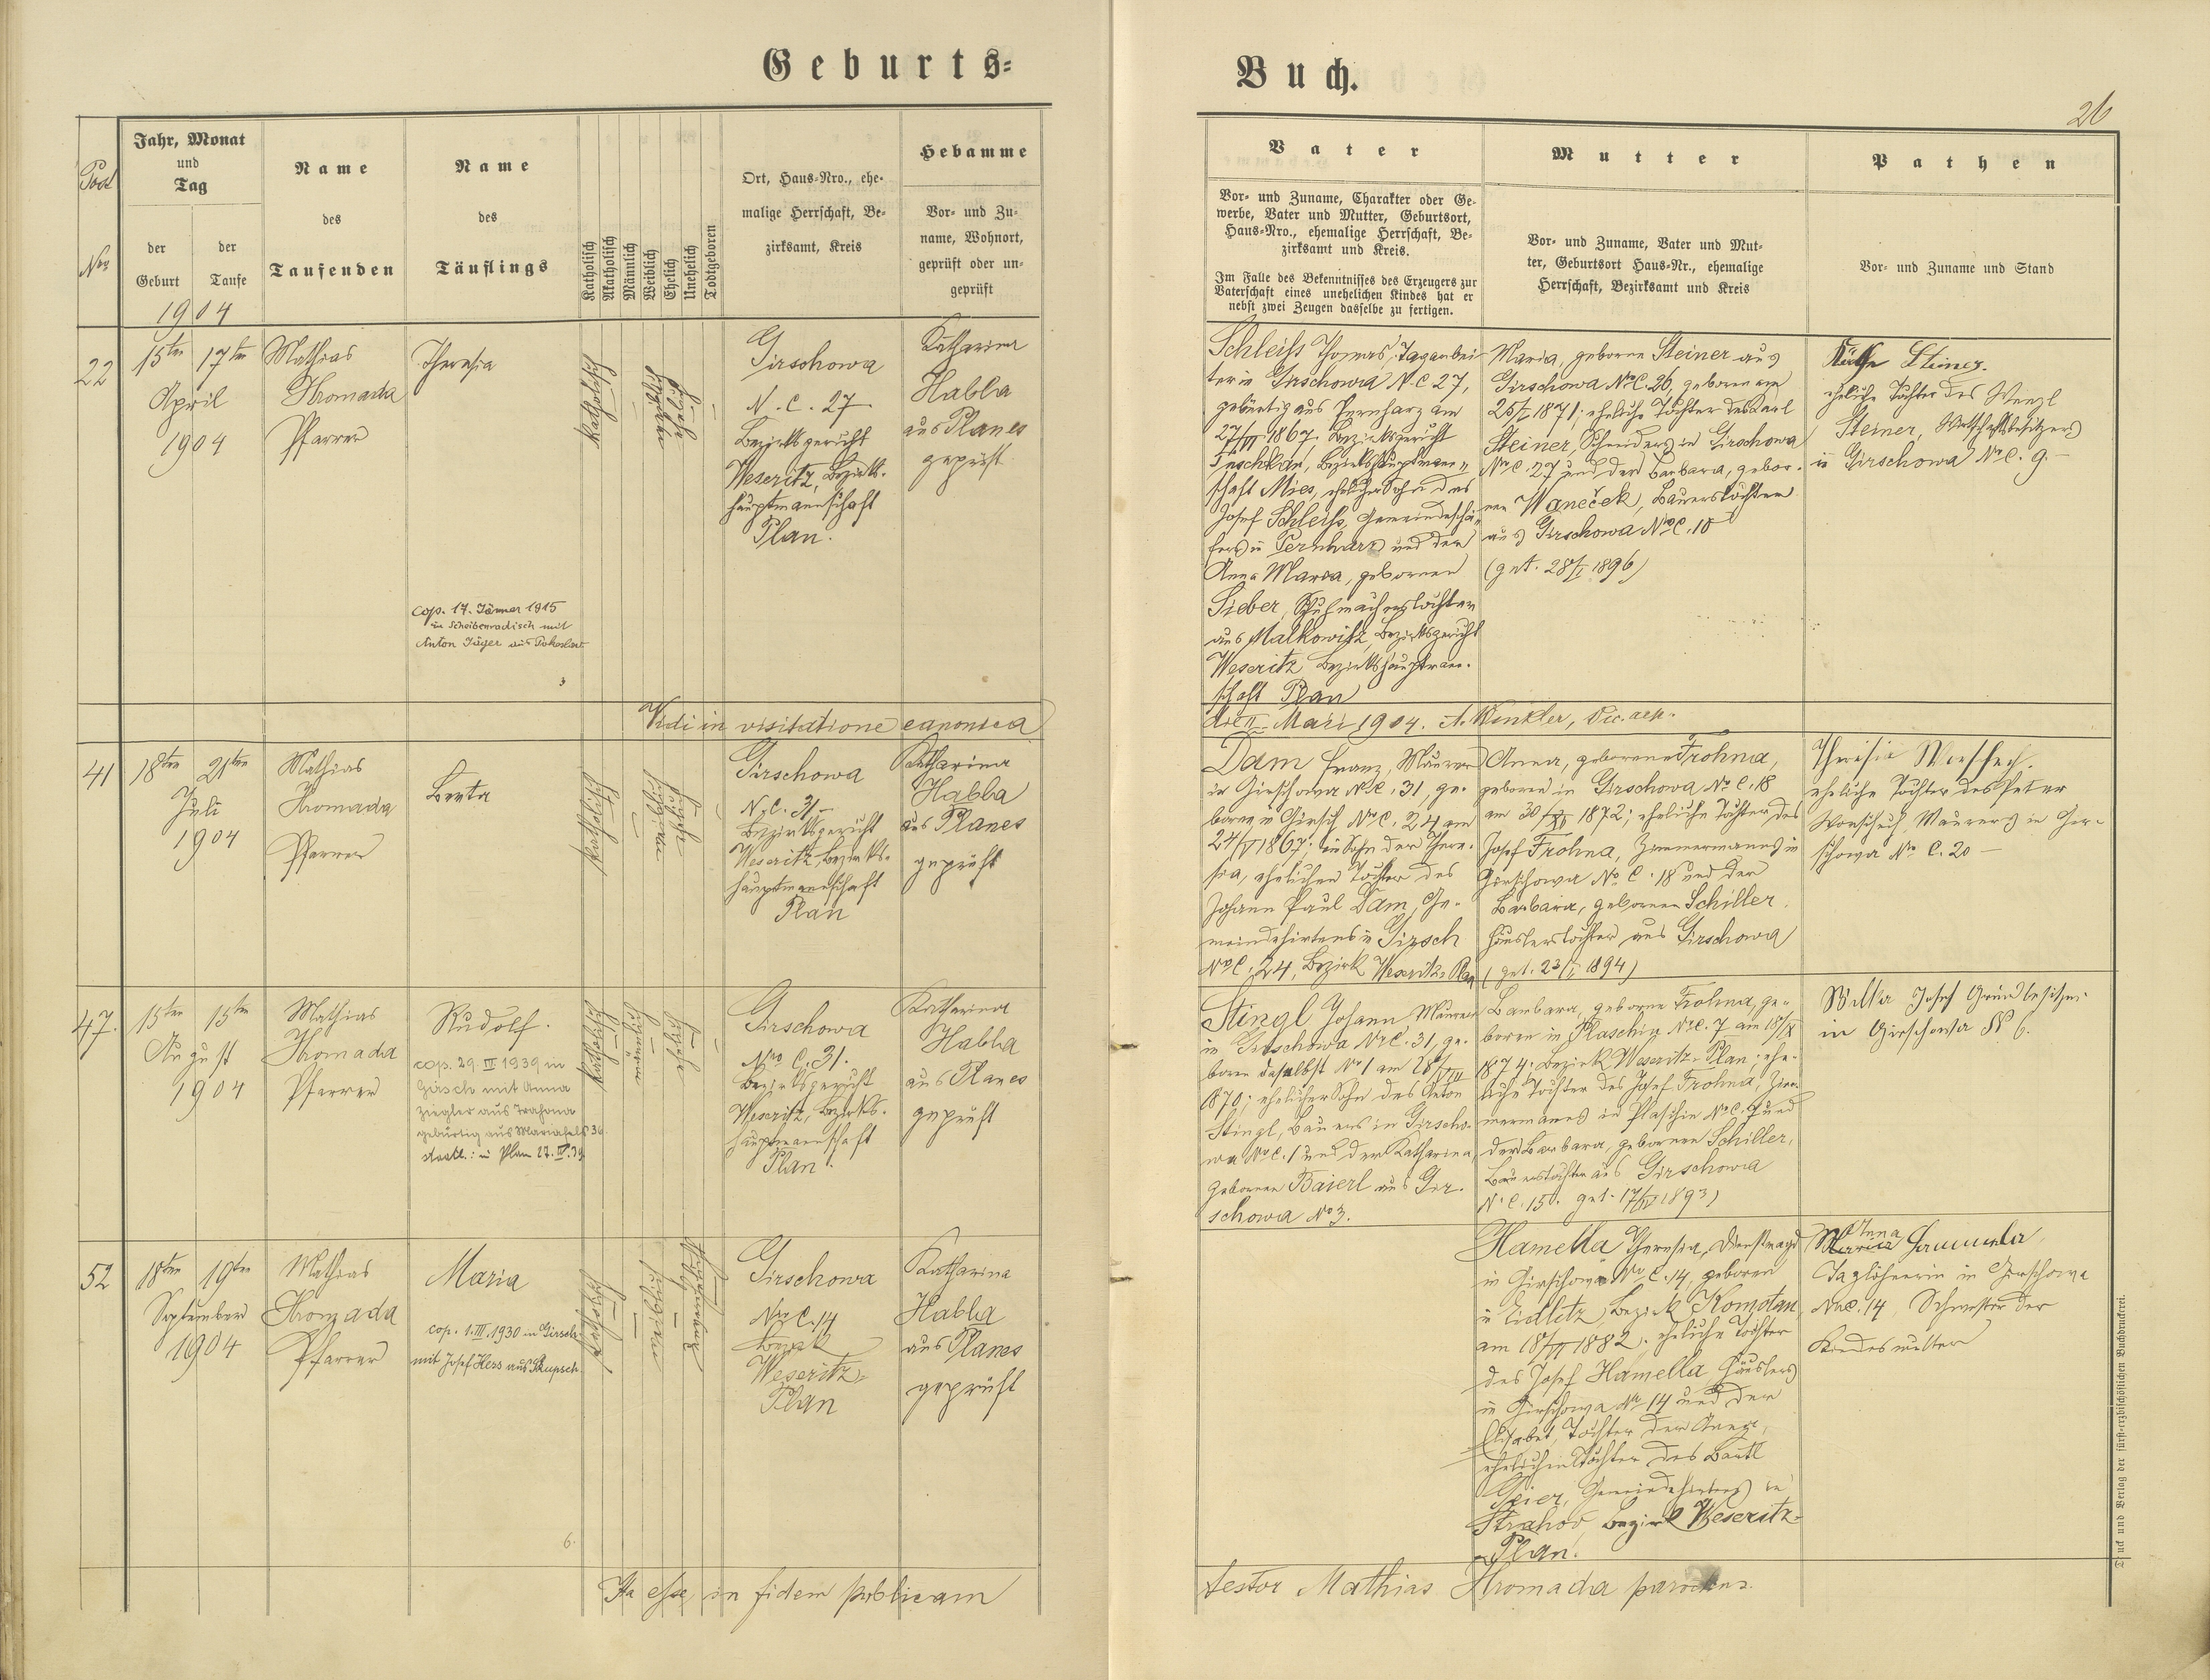 Geburts-
Buch.
26
Post
Nro
Jahr, Monat
und
Tag
der
Geburt
der
Taufe
1904
Name
des
Taufenden
Name
des
Täuflings
Katholisch
Akatholisch
Männlich
Weiblich
Ehelich
Unehelich
Todtgeboren
Ort, Haus-Nro., ehe-
malige Herrschaft, Be-
zirksamt, Kreis
Hebamme
Vor- und Zu-
name, Wohnort,
geprüft oder un-
geprüft
Vater
Vor- und Zuname, Charakter oder Ge-
werbe, Vater und Mutter, Geburtsort,
Haus-Nro., ehemalige Herrschaft, Be-
zirksamt und Kreis.
Im Falle des Bekenntnisses des Erzeugers zur
Vaterschaft eines unehelichen Kindes hat er
nebst zwei Zeugen dasselbe zu fertigen.
Mutter
Vor- und Zuname, Vater und Mut-
ter, Geburtsort Haus-Nr., ehemalige
Herrschaft, Bezirksamt und Kreis
Pathen
Vor- und Zuname und Stand
22
15ten 17ten
April
1904
Mathias
Hromada
Pfarrer
Theresia
cop. 17. Jänner 1915
in Scheibenradisch mit
Anton Jäger aus
Katholisch
Girschowa
N. C. 27
Bezirksgericht
Weseritz, Bezirks-
hauptmannschaft
Plan.
Katharina
Habla
aus Planes
geprüft
Schleiss Thomas, Taganbei-
ter in Girschowa N. C 27,
gebürtig aus Pernharz am
1867, Bezirksgericht
Tuschkau, Bezirkshauptmann-
schaft Mies, ehelicher Sohn des
Josef Schleiss, Gemeindeschä-
fers in Pernharz und der
Anna Maria, geborenen
Sieber, Schuhmacherstochter
aus Malkowitz, Bezirksgericht
Weseritz Bezirkshauptman-
schaft Plan
Maria, geborene Steiner aus
Girschowa NroC. 26, geboren am
25/I 1871; eheliche Tochter des Karl
Steiner, Schneiders in Girschowa
Nro C. 27 und der Barbara, gebor-
nen Waneček, Bauerstochter
aus Girschowa NroC. 10
(get. 28/I 1896)
Steiner.
eheliche Tochter des Wenzl
Steiner, Wirtschaftsbesitzers
in Girschowa NroC. 9.
Vidi in visitatione canonica
die Maii 1904. A. Winkler, Vic. aep.
41
18ten 21ten
Juli
1904
Mathias
Hromada
Pfarrer
Berta
Katholisch
Girschowa
N. C. 31
Bezirksgericht
Weseritz, Bezirks-
hauptmannschaft
Plan
Katharina
Habla
aus Planes
geprüft
Dam Franz, Maurer
in Girschowa NroC. 31, ge-
boren in Girsch NroC. 24 am
1867; ein Sohn der There-
sia, ehelichen Tochter des
Johann Paul Dam, Ge-
meindehirtens in Girsch
NroC. 24, Bezirk Weseritz-Plan
Anna, geborene Frohna,
geboren in Girschowa No C. 18
am 30 1872; eheliche Tochter des
Josef Frohna, Zimmermanns in
Girschowa No C. 18 und der
Barbara, geborenen Schiller,
Häuslerstochter aus Girschowa
(get. 23/I 1894)
Theresia Worschech.
eheliche Tochter des Peter
Worschech, Maurers in Gir-
schowa Nro C. 20
47.
15ten 15ten
August
1904
Mathias
Hromada
Pfarrer
Rudolf.
cop. 29. III 1939 in
Girsch mit Anna
Ziegler aus Trahona
gebürtig aus Mariafels 36
staatl.: in Plan 27. III. 39
Katholisch
Girschowa
Nro C. 31.
Bezirksgericht
Weseritz, Bezirks-
hauptmannschaft
Plan.
Katharina
Habla
aus Planes
geprüft
Stingl Johann Maurer
in Girschowa NroC. 31, ge-
boren daselbst No 1 am 28/VIII
1870; ehelicher Sohn des Anton
Stingl, Bauers in Girscho-
wa NroC. 1 und der Katharina,
geborenen Baierl aus Gir-
schowa No 3.
Barbara, geborene Frohna, ge-
boren in Plaschin NroC. 7 am
1874; Bezirk Weseritz-Plan; ehe-
liche Tochter des Josef Frohna, Zim-
mermanns in Plaschin NoC. 7 und
der Barbara, geborenen Schiller,
Bauerstochter aus Girschowa
N. C. 15. get. 1893)
Wilka Josef Grundbesitzer
in Girschowa N 6.
52
18ten 19ten
September
1904
Mathias
Hromada
Pfarrer
Maria
cop. 1. III. 1930 in Girsch
mit Josef Hess aus Skupsch.
6.
Katholisch
Girschowa
Nro C. 14
Bezirk
Weseritz-
Plan
Katharina
Habla
aus Planes
geprüft
Hamella Theresia, Dienstmagd
in Girschowa Nro C. 14, geboren
in Eidlitz, Bezirk Komotau,
am 1882; eheliche Tochter
des Josef Hamella Häuslers
in Girschowa Nro 14 und der
Elisabet, Tochter der Anna,
ehelichen Tochter des Bartl
Geier, Gemeindehirtens in
Strahov, Bezirk Weseritz-
Plan.
Anna
Maria Hammela
Taglöhnerin in Girschowa
NroC. 14, Schwester der
Kindesmutter
Ita esse, in fidem publicam
testor Mathias Hromada parochus.
Druck und Verlag der fürst-erzbischöflichen Buchdruckerei.